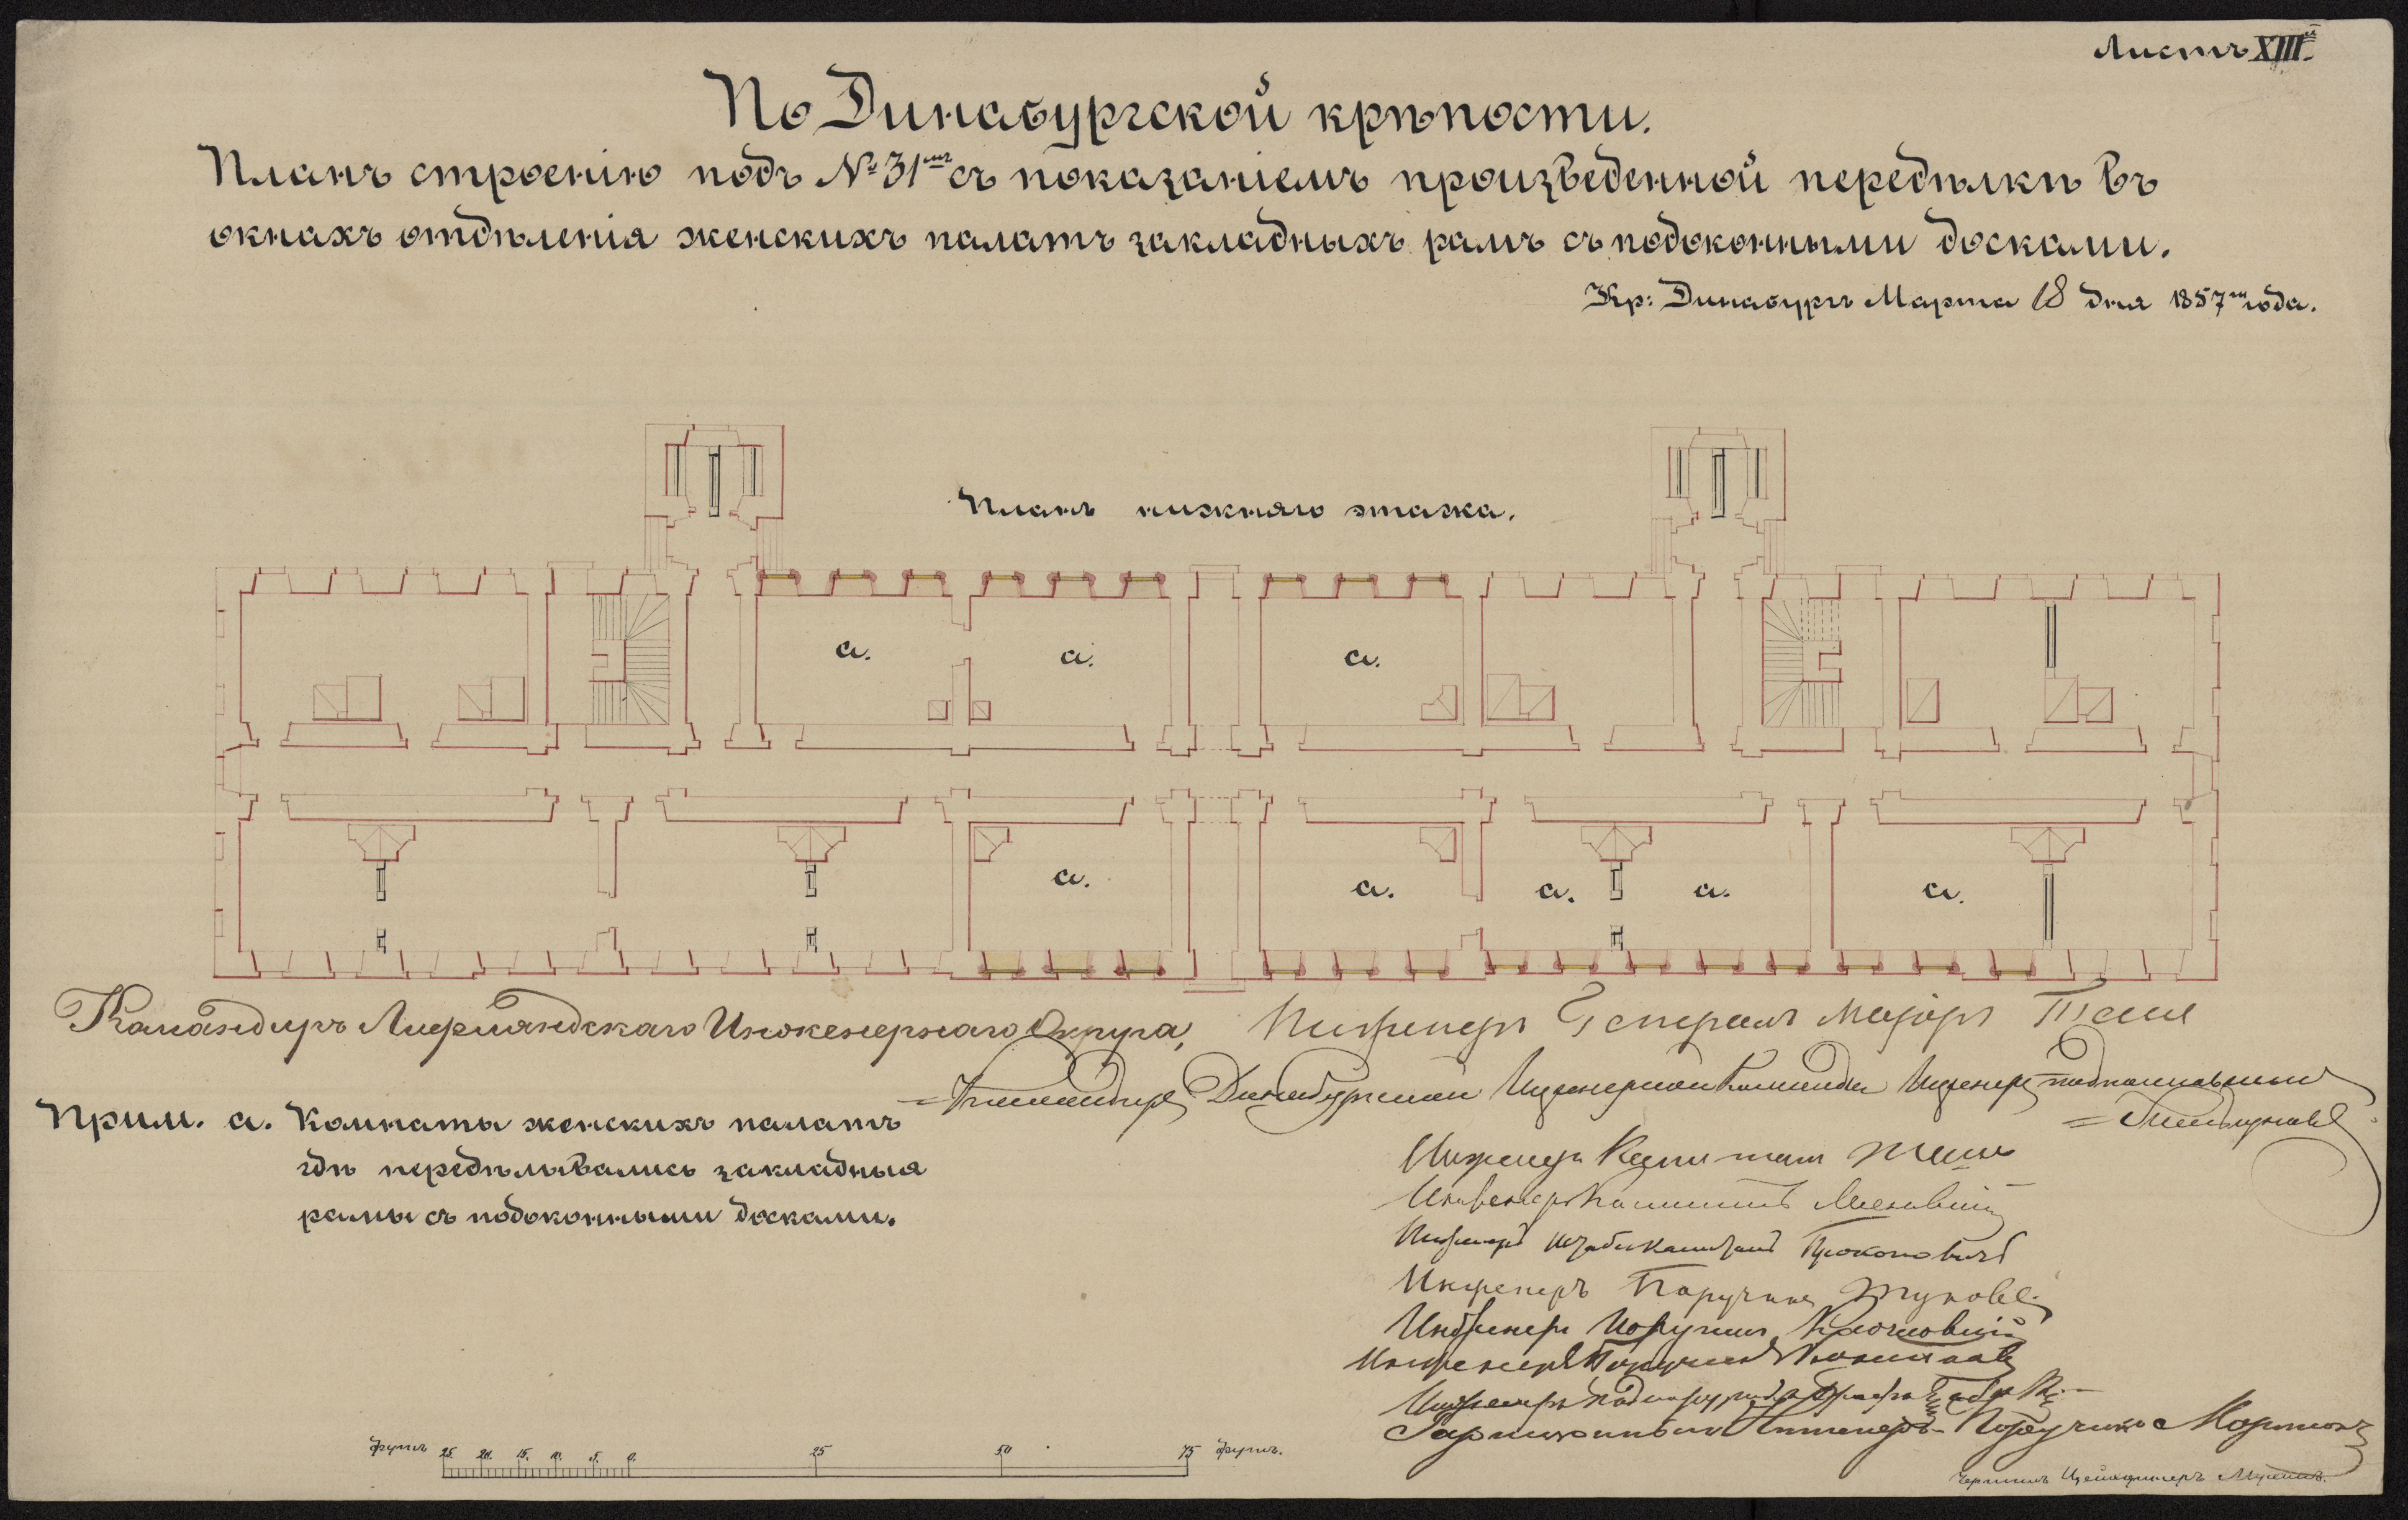 Листъ XIII.й
По Динабургской крѣпости.
Планъ строенію подъ № 31мъ съ показаніемъ произведенной передѣлкѣ въ
окнахъ отдѣленія женскихъ палатъ закладныхъ рамъ съ подоконными досками.
Кр: Динабургъ Марта 18 дня 1857го года.
Планъ нижняго этажа.
а. а. а.
а. а. а. а. а.
Командиръ Лифляндскаго Инженернаго Округа, Инженеръ Генералъ Маіоръ
Командиръ Динабургской Инженерной Команды Инженеръ подполковникъ
Прим. а. Комнаты женскихъ палатъ
гдѣ передѣлывались закладныя
рамы съ подоконными досками.
Инженеръ Капитанъ
Инженеръ Капитанъ
Инженеръ Штабсъ Капитанъ Прокоповичъ
Инженеръ Поручикъ Жуковъ
Инженеръ Поручикъ
Инженеръ Поручикъ
Инженеръ Подпоручикъ
Гарнизонный Инженеръ Поручикъ
футъ 25. 20. 15. 10. 5. 0. 25 50 75 футъ.
Чертилъ